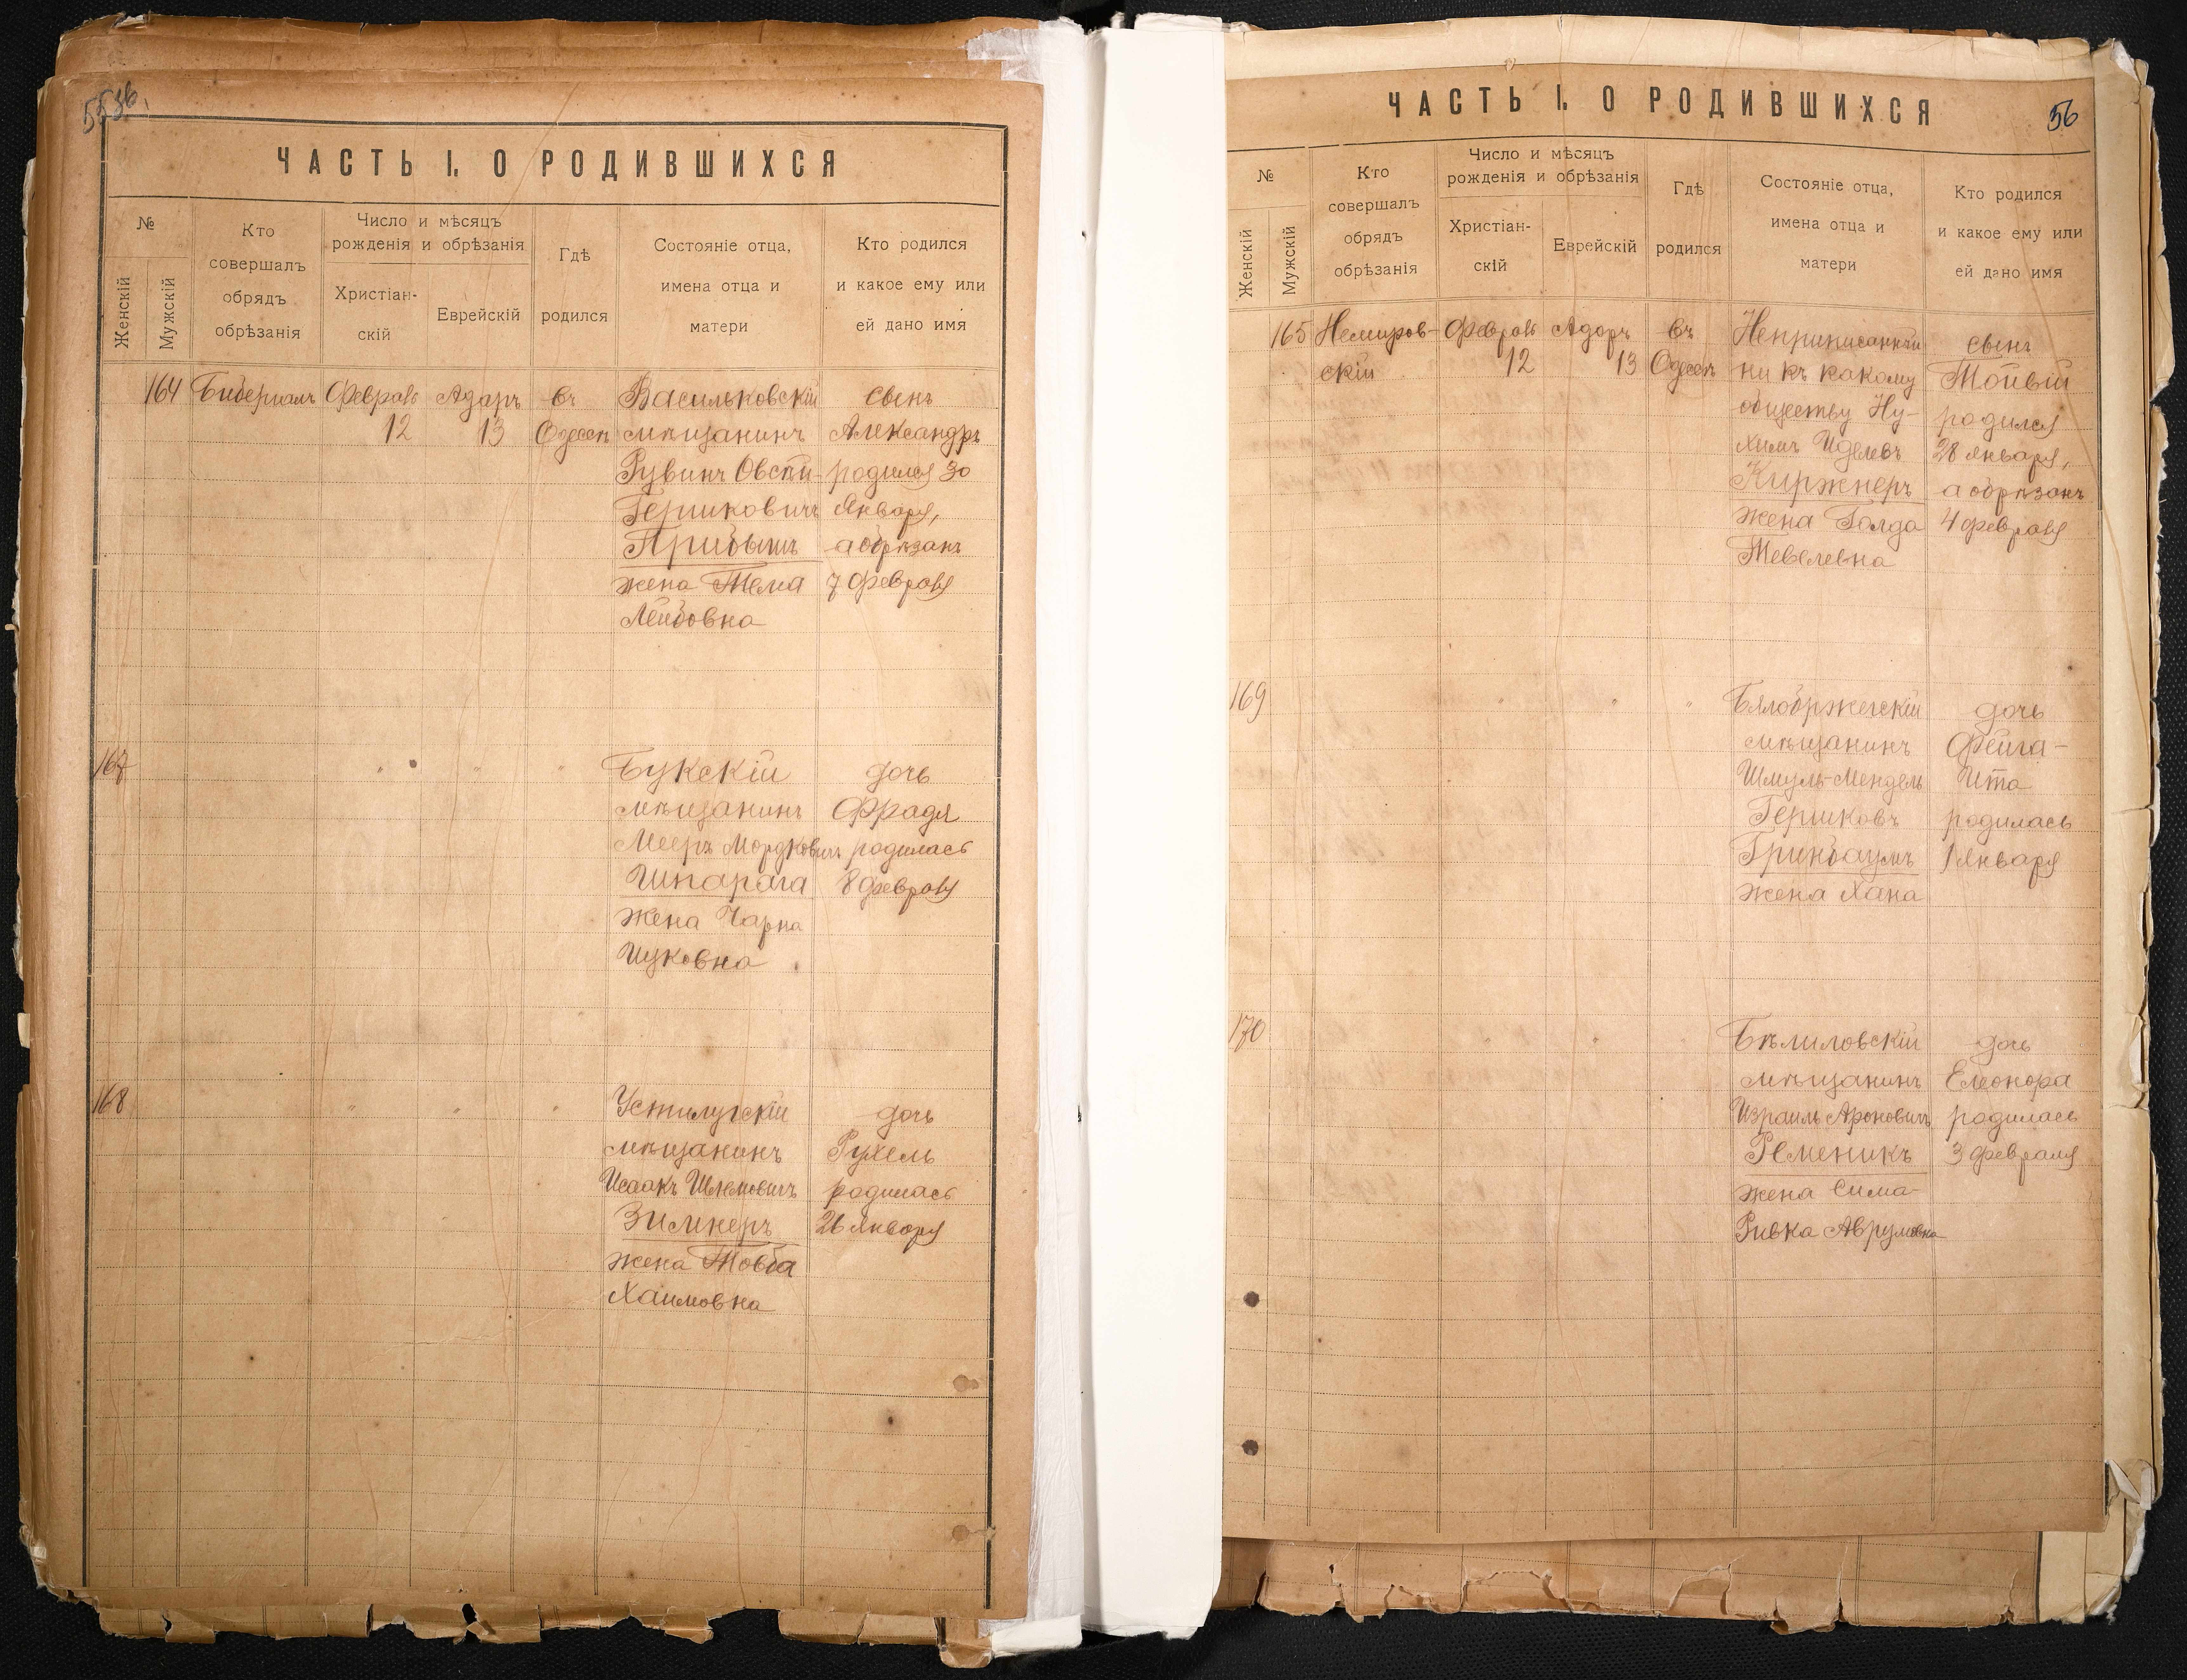 ЧАСТЬ I. О РОДИВШИХСЯ
№
Женскій
Мужскій
Кто
совершалъ
обрядъ
обрѣзанія
Число и мѣсяцъ
рожденія и обрѣзанія
Христіан-
скій
Еврейскій
Гдѣ
родился
Состояніе отца,
имена отца и
матери
Кто родился
и какое ему или
ей дано имя
164 Февраль Адаръ въ Васильковскій сынъ
12 13 Одессѣ мѣщанинъ Александръ
Рувинъ родился 30
Гершковичъ Января,
а обрѣзанъ
жена 7 Февраля
Лейбовна
167 " " " Букскій дочь
мѣщанинъ Фрадя
Мееръ Мордковичъ родилась
Шпарага 8 Февраля
жена Чарна
Ицковна
168 " " " Устилугскій дочь
мѣщанинъ Рухель
Исаакъ Шлемовичъ родилась
Зильнеръ 26 Января
жена Товба
Хаимовна
ЧАСТЬ I. О РОДИВШИХСЯ
56
№
Женскій
Мужскій
Кто
совершалъ
обрядъ
обрѣзанія
Число и мѣсяцъ
рожденія и обрѣзанія
Христіан-
скій
Еврейскій
Гдѣ
родился
Состояніе отца,
имена отца и
матери
Кто родился
и какое ему или
ей дано имя
165 Немиров- Февраль Адаръ въ Неприписанный сынъ
скій 12 13 Одессѣ ни къ какому Тойвій
обществу Ну- родился
химъ Иделевъ 28 Января,
Киржнеръ а обрѣзанъ
жена Голда 4 Февраля
Тевелевна
169 " " " Бялобржегскій дочь
мѣщанинъ Фейга-
Шмуль-Мендель Ита
Гершковъ родилась
Гринбаумъ 1 Января
жена Хана
170 " " " Бѣлиловскій дочь
мѣщанинъ Елеонора
Израиль Ароновичъ родилась
Ременикъ 3 Февраля
жена Сима-
Ривка Аврумовна